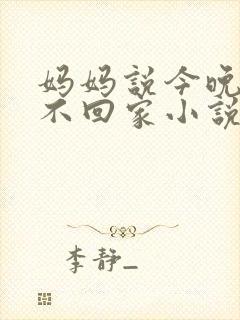 妈妈説今晚
不回家小説
李静_